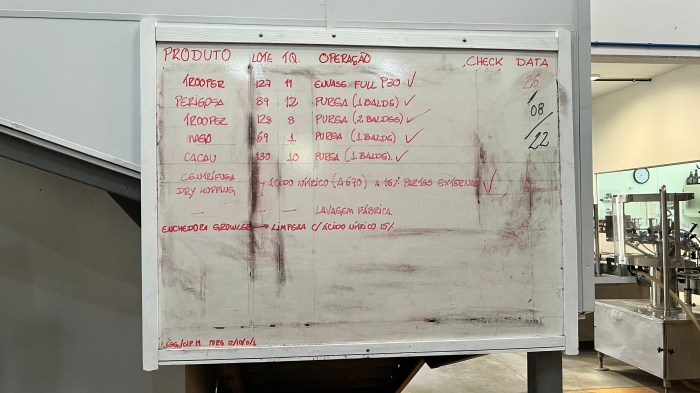 PRODUTO LOTE TQ. OPERAÇÃO CHECK DATA
TROOPER 127 11 ENVASE FULL P30 ✓ 26
PERIGOSA 89 12 PURGA (1 BALDE) ✓ / 08
TROOPER 128 8 PURGA (2 BALDES) ✓ / 22
69 1 PURGA (1 BALDE) ✓
CACAU 130 10 PURGA (1 BALDE) ✓
CENTRÍFUGA
DRY HOPPING ÁCIDO NÍTRICO (A670) A 15% PARTES EXTERNAS ✓
— — — LAVAGEM FÁBRICA
ENCHEDORA GROWLER → LIMPEZA C/ ÁCIDO NÍTRICO 15%